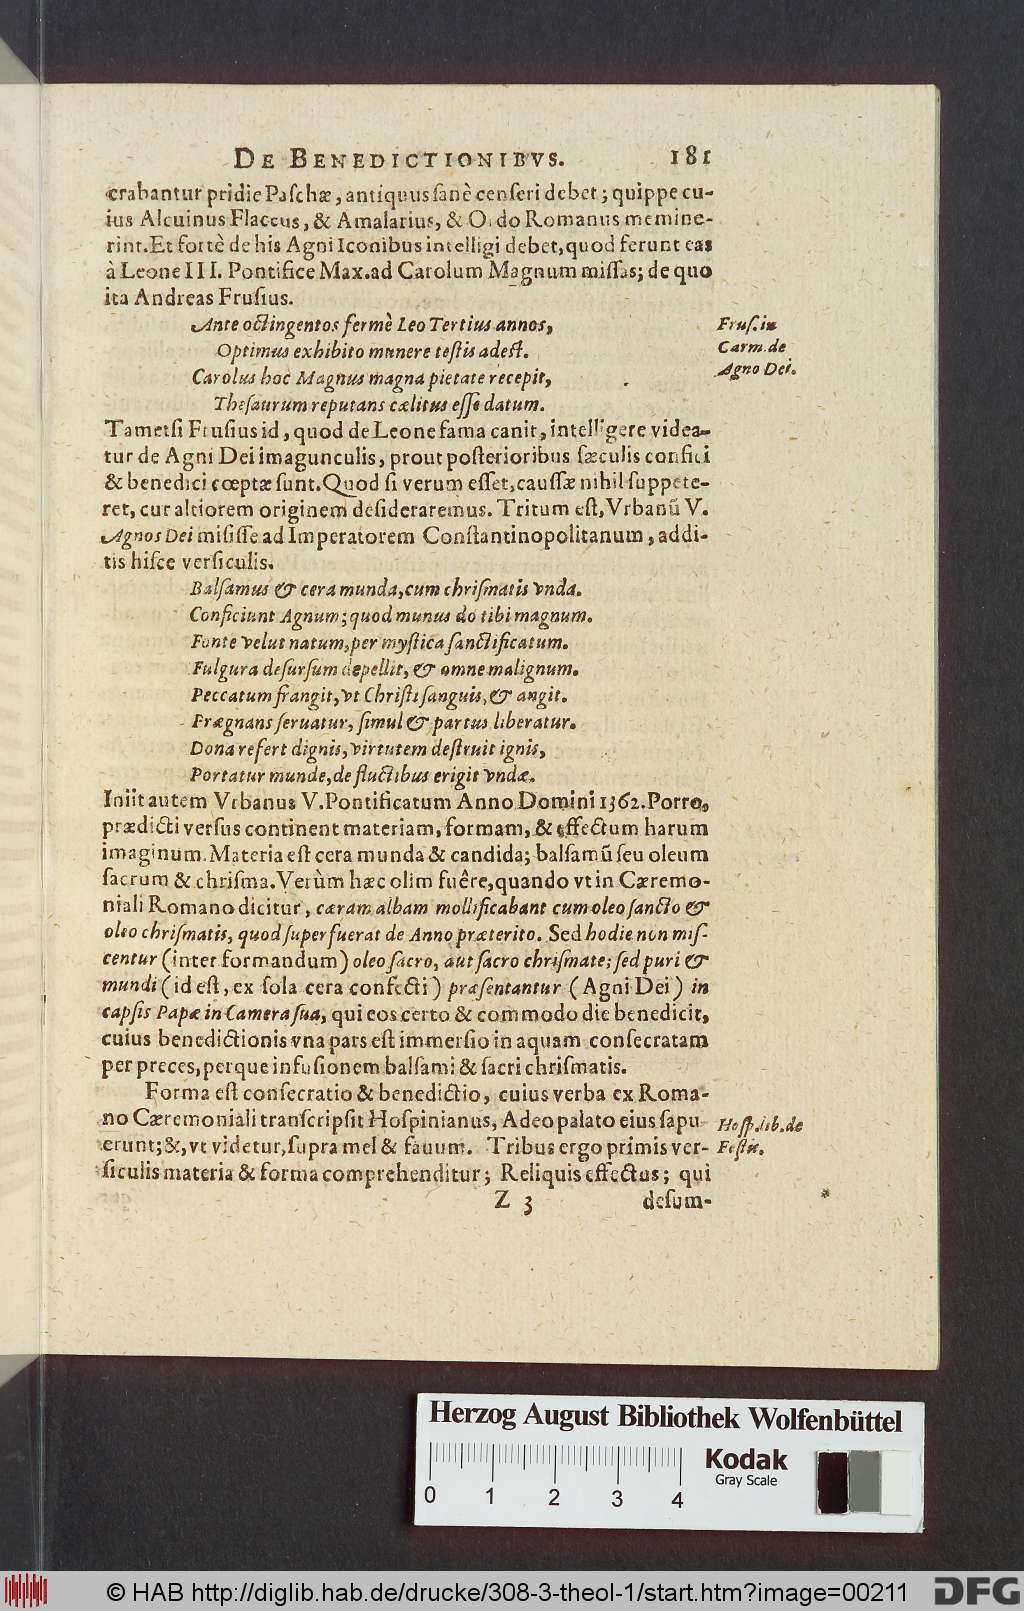 DE BENEDICTIONIBVS. 181
crabantur pridie Paſchæ, antiquus ſanè cenſeri debet; quippe cu-
ius Alcuinus Flaccus, & Amalarius, & Ordo Romanus memine-
rint. Et fortè de his Agni Iconibus intelligi debet, quod ferunt eas
à Leone III. Pontifice Max. ad Carolum Magnum miſſas; de quo
ita Andreas Fruſius.
Ante octingentos fermè Leo Tertius annos,
Optimus exhibito munere teſtis adeſt.
Carolus hoc Magnus magna pietate recepit,
Theſaurum reputans cælitus eſſe datum.
Fruſ. in
Carm. de
Agno Dei.
Tametſi Fruſius id, quod de Leone fama canit, intelligere videa-
tur de Agni Dei imagunculis, prout poſterioribus ſæculis confici
& benedici cœptæ ſunt. Quod ſi verum eſſet, cauſſæ nihil ſuppete-
ret, cur altiorem originem deſideraremus. Tritum eſt, Vrbanũ V.
Agnos Dei miſiſſe ad Imperatorem Conſtantinopolitanum, addi-
tis hiſce verſiculis.
Balſamus & cera munda, cum chriſmatis vnda.
Conficiunt Agnum; quod munus do tibi magnum.
Fonte velut natum, per myſtica ſanctificatum.
Fulgura deſurſum depellit, & omne malignum.
Peccatum frangit, vt Chriſti ſanguis, & angit.
Prægnans ſeruatur, ſimul & partus liberatur.
Dona refert dignis, virtutem deſtruit ignis,
Portatur munde, de fluctibus erigit vndæ.
Iniit autem Vrbanus V. Pontificatum Anno Domini 1362. Porro,
prædicti verſus continent materiam, formam, & effectum harum
imaginum. Materia eſt cera munda & candida; balſamũ ſeu oleum
ſacrum & chriſma. Verùm hæc olim fuêre, quando vt in Cæremo-
niali Romano dicitur, cæram albam mollificabant cum oleo ſancto &
oleo chriſmatis, quod ſuperfuerat de Anno præterito. Sed hodie non miſ-
centur (inter formandum) oleo ſacro, aut ſacro chriſmate; ſed puri &
mundi (id eſt, ex ſola cera confecti) præſentantur (Agni Dei) in
capſis Papæ in Camera ſua, qui eos certo & commodo die benedicit,
cuius benedictionis vna pars eſt immerſio in aquam conſecratam
per preces, perque infuſionem balſami & ſacri chriſmatis.
Forma eſt conſecratio & benedictio, cuius verba ex Roma-
no Cæremoniali tranſcripſit Hoſpinianus, Adeo palato eius ſapu
erunt; &, vt videtur, ſupra mel & fauum. Tribus ergo primis ver-
ſiculis materia & forma comprehenditur; Reliquis effectus; qui
Hoſp. lib. de
Feſtis.
Z 3 deſum-
Herzog August Bibliothek Wolfenbüttel
Kodak
Gray Scale
0 1 2 3 4
© HAB http://diglib.hab.de/drucke/308-3-theol-1/start.htm?image=00211
DFG